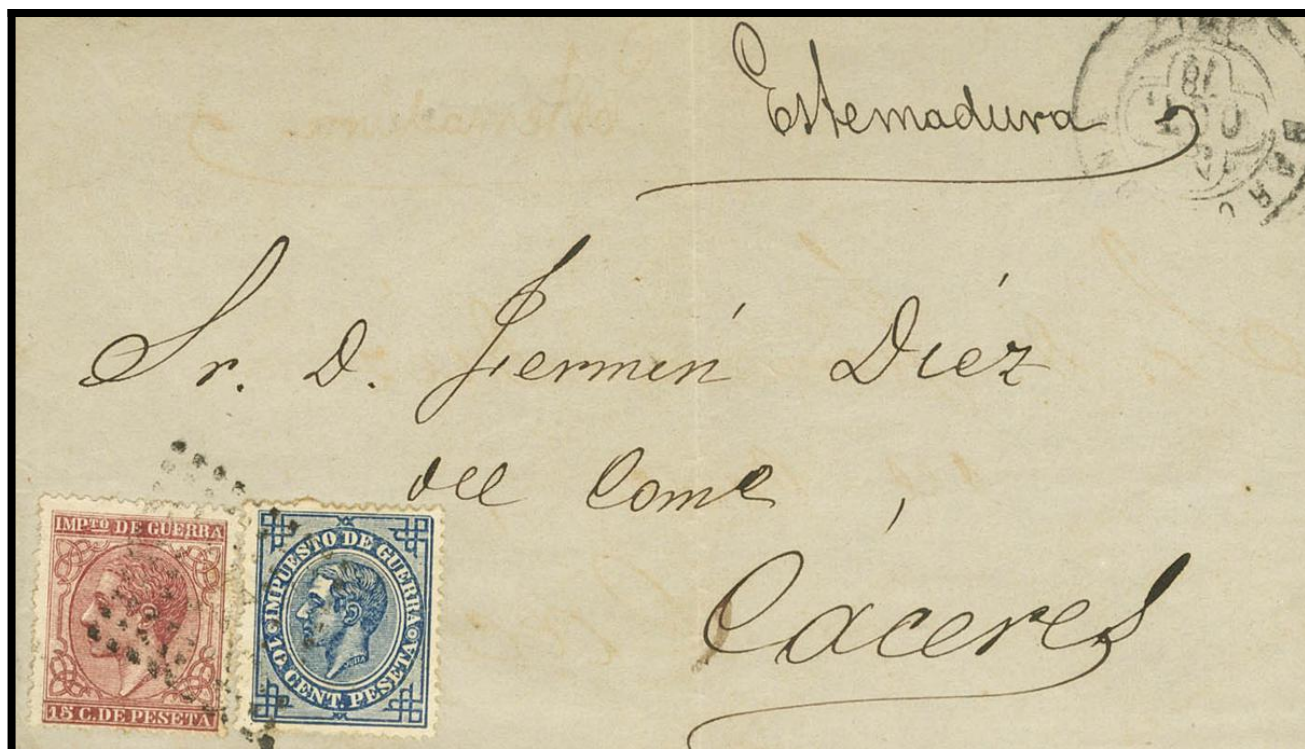 Estemadura
Sr. D. Fermín Díez
del Com.e,
Cáceres
IMPTO DE GUERRA
15 C. DE PESETA
IMPUESTO DE GUERRA
10 CENT. PESETA
18 OCT.